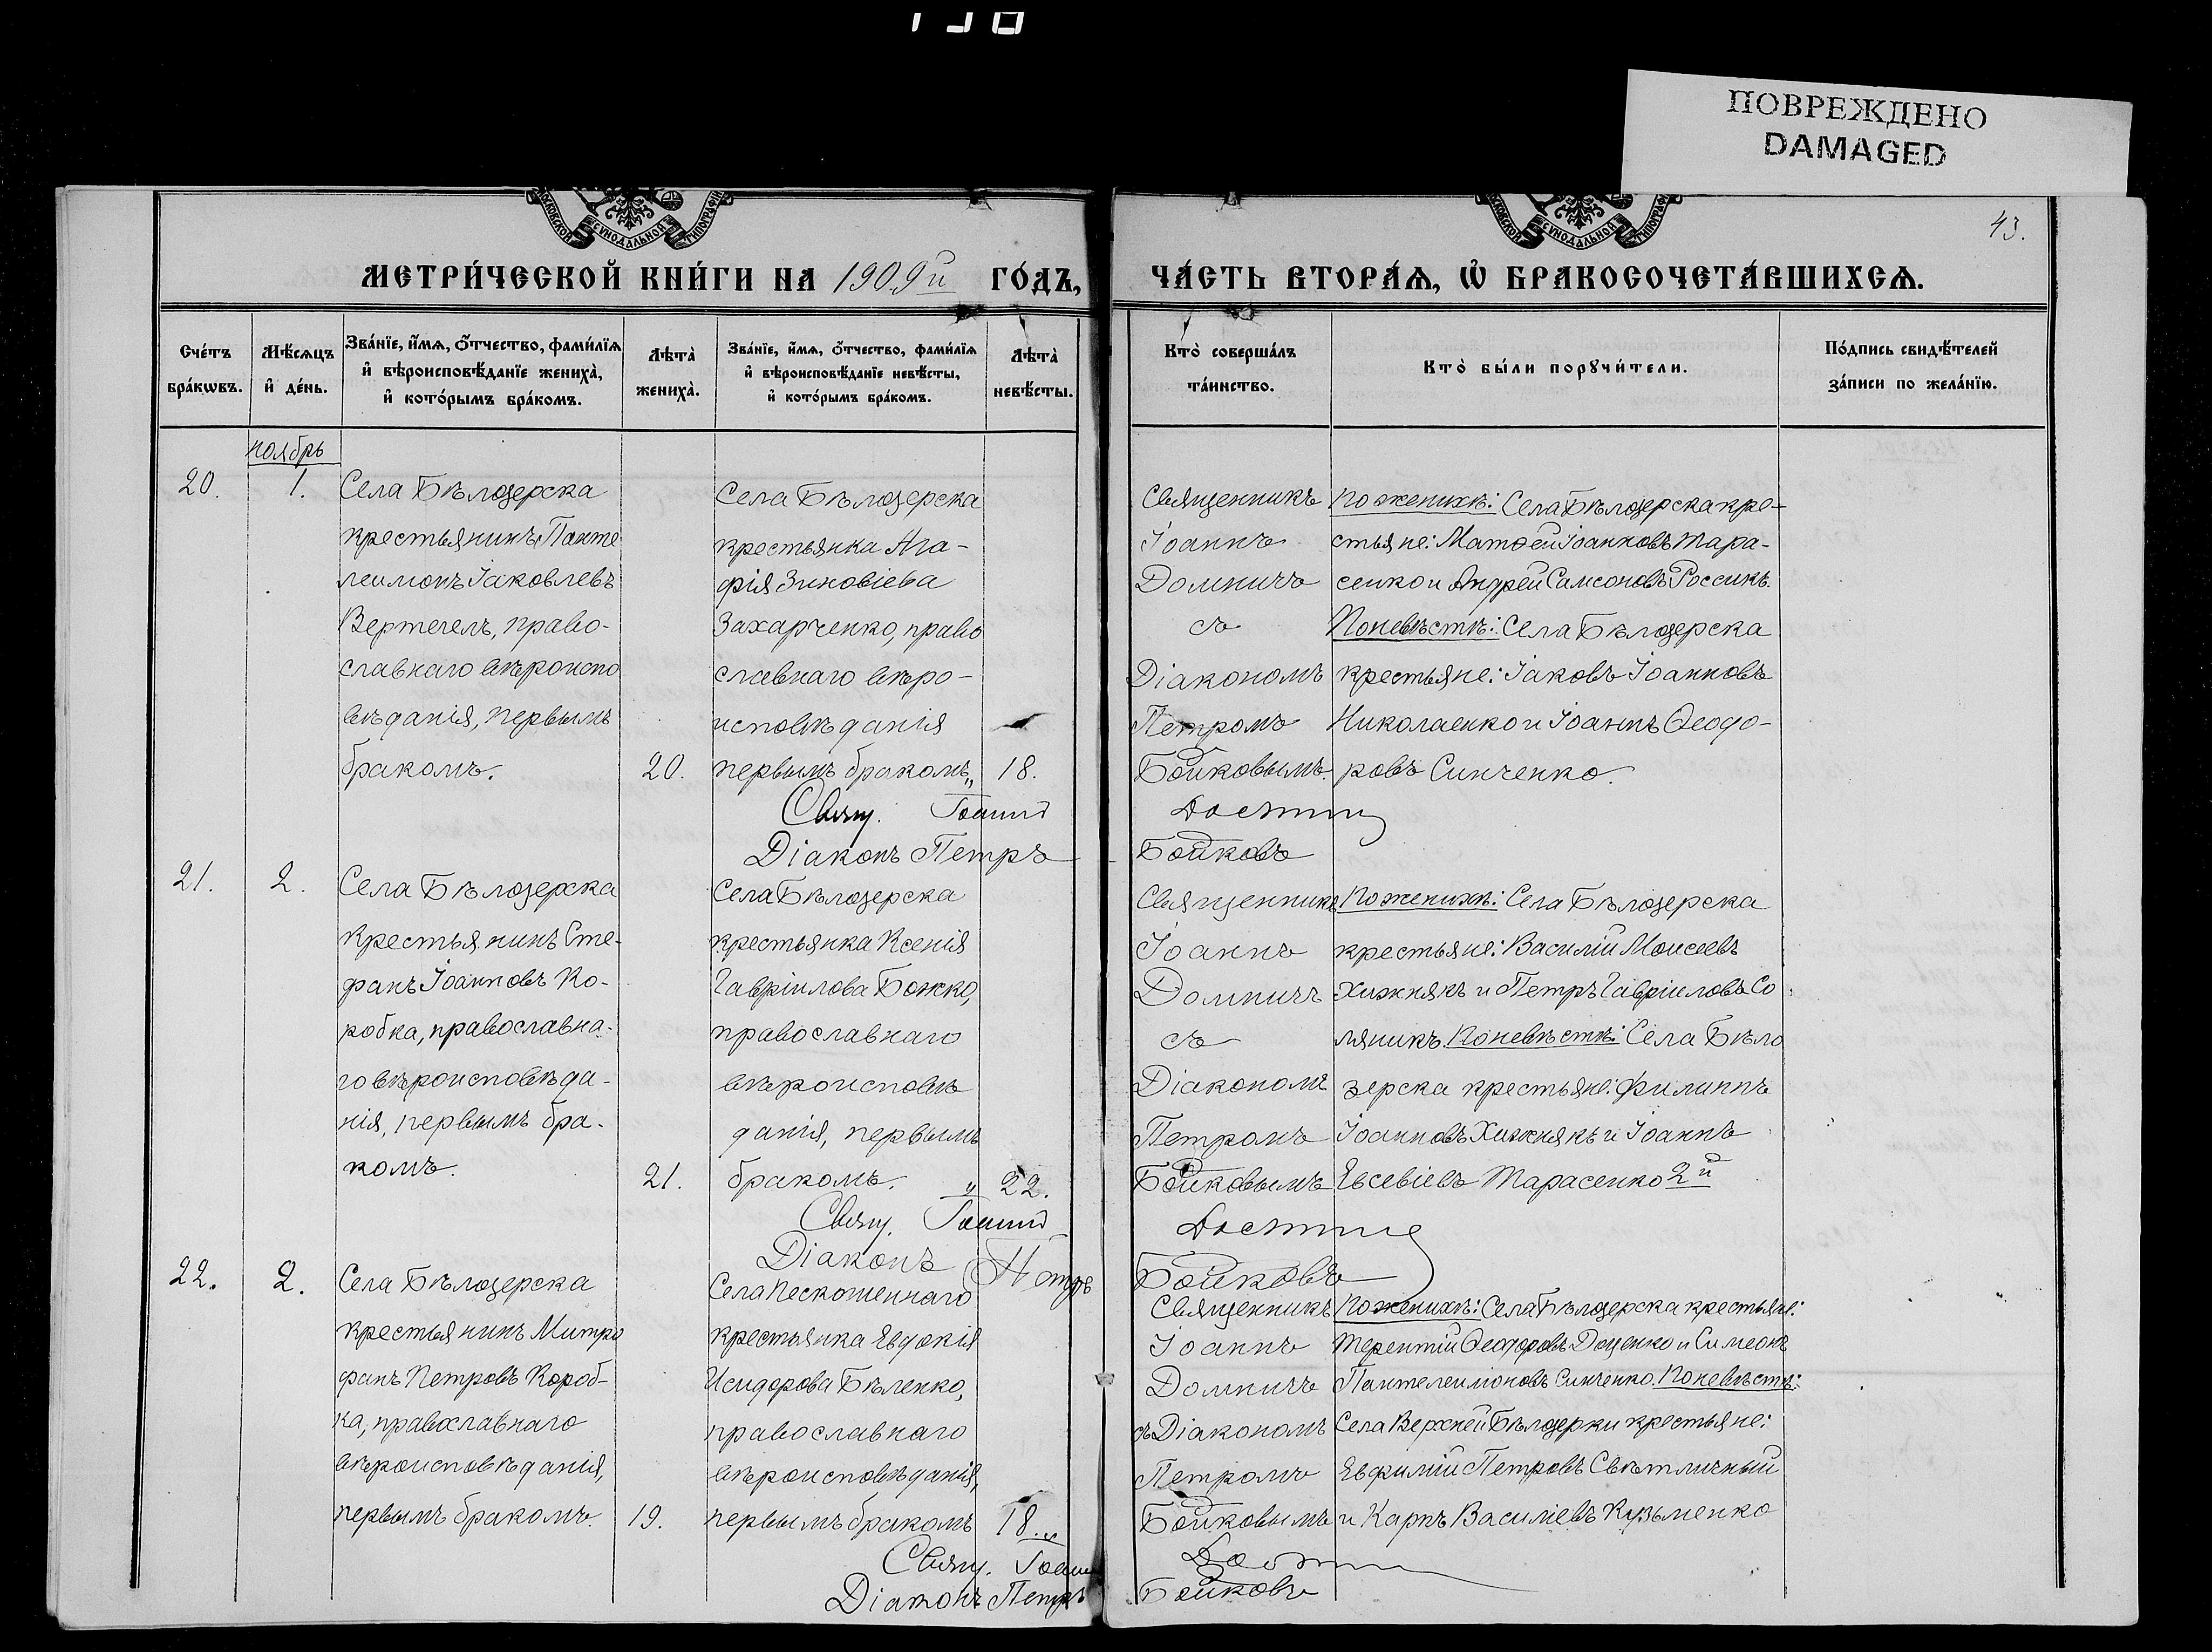 ПОВРЕЖДЕНО
DAMAGED
43.
МЕТРИ́ЧЕСКОЙ КНИ́ГИ НА 1909й ГО́ДЪ,
ЧА́СТЬ ВТОРА́Ѧ, Ѡ БРАКОСОЧЕТА́ВШИХСѦ.
Сче́тъ бра́кωвъ.
Мѣ́сѧцъ и҆ де́нь.
Зва́нїе, и҆́мѧ, ѻ҆́тчество, фами́лїѧ
и҆ вѣроисповѣ́данїе жениха̀,
и҆ кото́рымъ бра́комъ.
Лѣта̀ жениха̀.
Зва́нїе, и҆́мѧ, ѻ҆́тчество, фами́лїѧ
и҆ вѣроисповѣ́данїе невѣ́сты,
и҆ кото́рымъ бра́комъ.
Лѣта̀ невѣ́сты.
Кто̀ соверша́лъ та́инство.
Кто̀ бы́ли порꙋчи́тели.
По́дпись свидѣ́телей
за́писи по жела́нїю.
ноябрь
20.
1.
Села Бѣлозерска
крестьянинъ Панте
леимонъ Іаковлевъ
Вертегелъ, право-
славнаго вѣроиспо
вѣданія, первымъ
бракомъ.
20.
Села Бѣлозерска
крестьянка Ага-
фія Зиновіева
Захарченко, право
славнаго вѣро-
исповѣданія
первымъ бракомъ„
18.
Священникъ
Іоаннъ
Домничъ
съ
Діакономъ
Петромъ
Бойковымъ.
По женихѣ: Села Бѣлозерска кре-
стьяне: Матѳей Іоанновъ Тара-
сенко и Андрей Самсоновъ Россикъ.
По невѣстѣ: Села Бѣлозерска
крестьяне: Іаковъ Іоанновъ
Николаенко и Іоаннъ Ѳеодо-
ровъ Синченко.
Свящ. Іоаннъ
Діаконъ Петръ Бойковъ
21.
2.
Села Бѣлозерска
крестьянинъ Сте-
фанъ Іоанновъ Ко-
робка, православна-
го вѣроисповѣда-
нія, первымъ бра-
комъ.
21.
Села Бѣлозерска
крестьянка Ксенія
Гавріилова Божко,
православнаго
вѣроисповѣ
данія, первымъ
бракомъ. „
22.
Священникъ
Іоаннъ
Домничъ
съ
Діакономъ
Петромъ
Бойковымъ
По женихѣ: Села Бѣлозерска
крестьяне: Василій Моисеевъ
Хижнякъ и Петръ Гавріиловъ Со
ляникъ. По невѣстѣ: Села Бѣло
зерска крестьяне: Филиппъ
Іоанновъ Хижнякъ и Іоаннъ
Евсевіевъ Тарасенко 2й
Свящ. Іоаннъ
Діаконъ Петръ Бойковъ
22.
2.
Села Бѣлозерска
крестьянинъ Митро
фанъ Петровъ Короб-
ка, православнаго
вѣроисповѣданія,
первымъ бракомъ.
19.
Села Нескошеннаго
крестьянка Евдокія
Исидорова Бѣленко,
православнаго
вѣроисповѣданія,
первымъ бракомъ
18. „
Священникъ
Іоаннъ
Домничъ
съ Діакономъ
Петромъ
Бойковымъ
По женихѣ: Села Бѣлозерска крестьяне:
Терентій Ѳеодоровъ Доценко и Симеонъ
Пантелеимоновъ Синченко. По невѣстѣ:
Села Верхней Бѣлозерки крестьяне:
Евфимій Петровъ Свѣтличный
и Карпъ Василіевъ Кузьменко
Свящ. Іоаннъ
Діаконъ Петръ Бойковъ